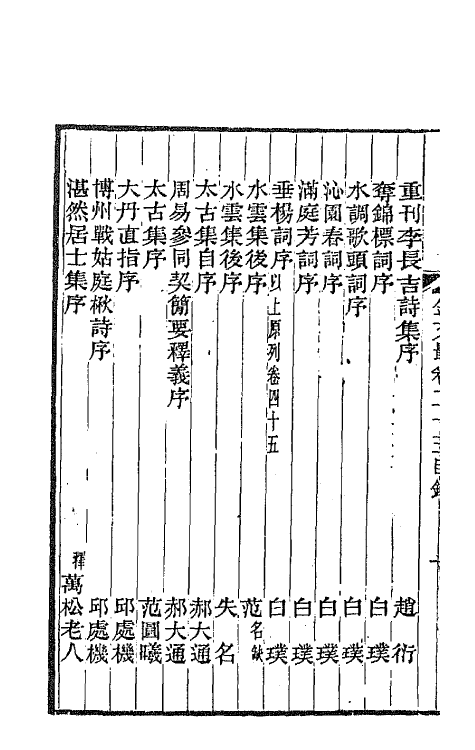 重刊李長吉詩集序 趙衍
奪錦標詞序 白璞
水調歌頭詞序 白璞
沁園春詞序 白璞
滿庭芳詞序 白璞
垂楊詞序 以上原列卷四十五 白璞
水雲集後序 范名缺
水雲集後序 失名
太古集自序 郝大通
周易參同契簡要釋義序 郝大通
太古集序 范圓曦
大丹直指序 邱處機
博州戰姑庭楸詩序 邱處機
湛然居士集序 釋萬松老人